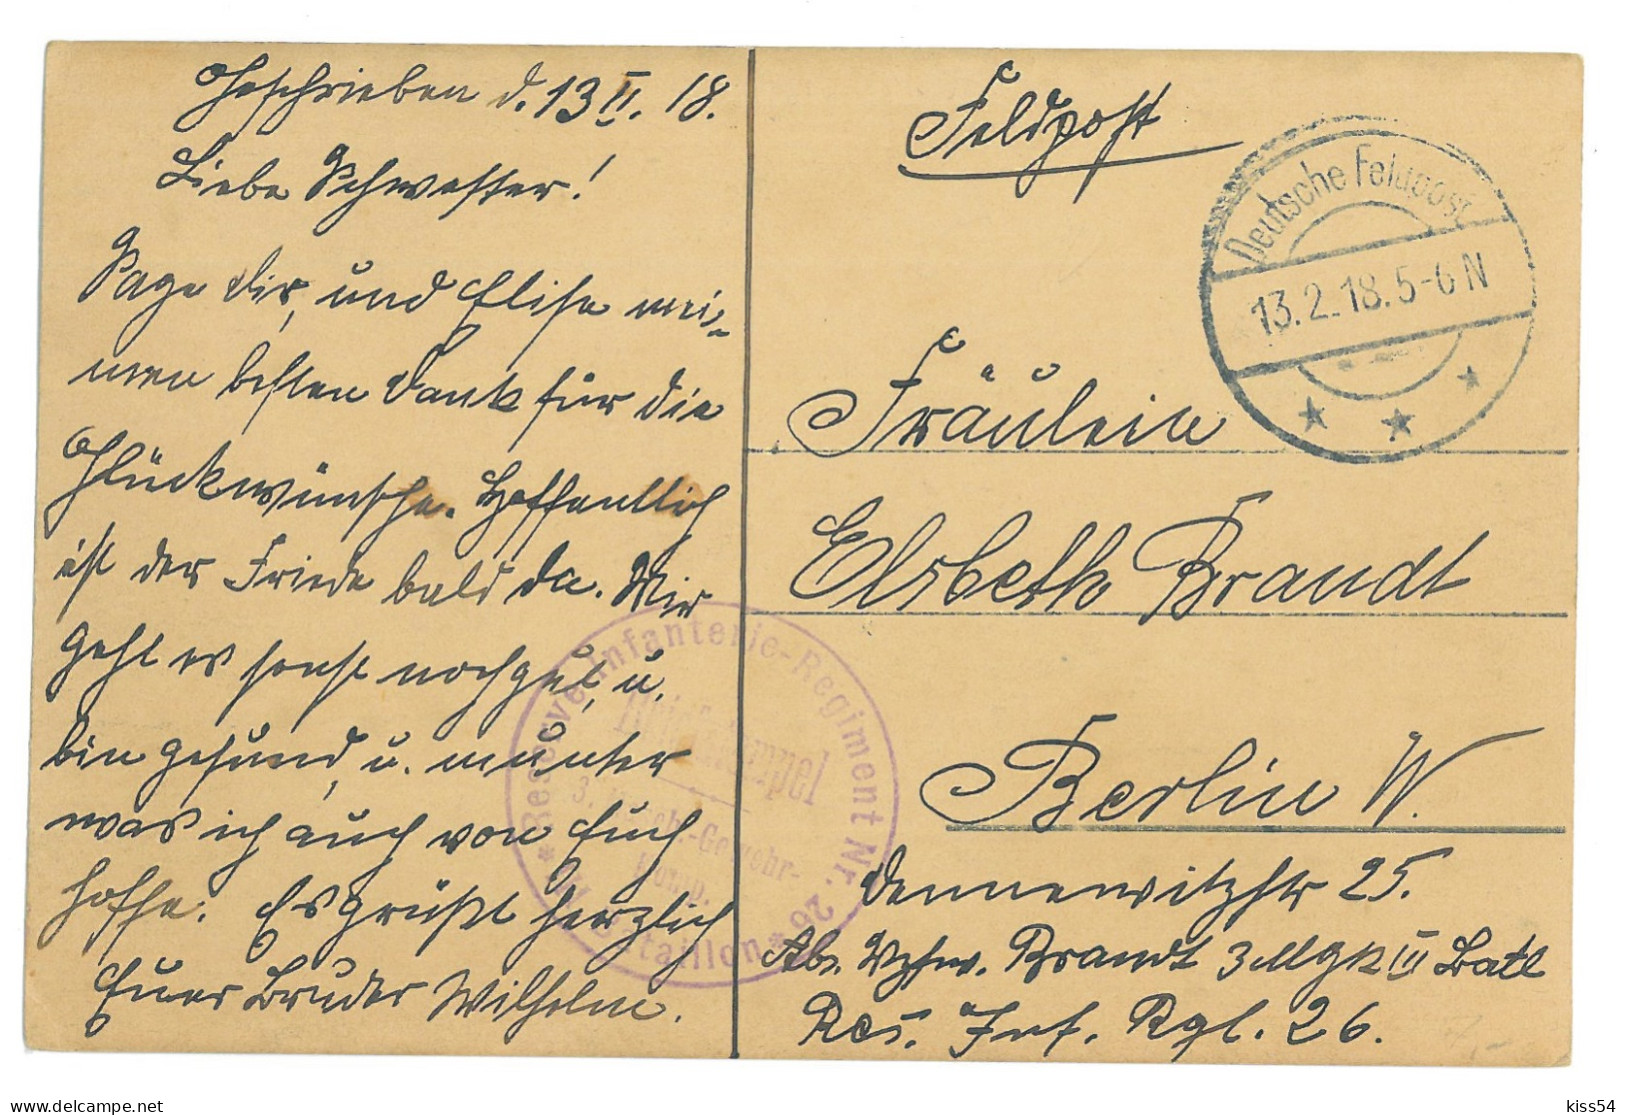 Geschrieben d. 13 II. 18.
Liebe Schwester!
Sage dir, und Elise mei-
nen besten Dank für die
Glückwünsche. Hoffentlich
ist der Friede bald da. Mir
geht es sonst noch gut, u.
bin gesund, u. munter
was ich auch von Euch
hoffe. Es grüßt herzlich
Euer Bruder Wilhelm.
Feldpost
Deutsche Feldpost
13.2.18.5-6N
Fräulein
Elsbeth Brandt
Berlin W.
Dennewitzstr 25.
Abs. Vzfw. Brandt 3 MGK III Batl
Res. Inf. Rgt. 26.
Reserve-Infanterie-Regiment Nr. 26
Briefstempel
3. Masch.-Gewehr-
Komp.
Bataillon
kiss54